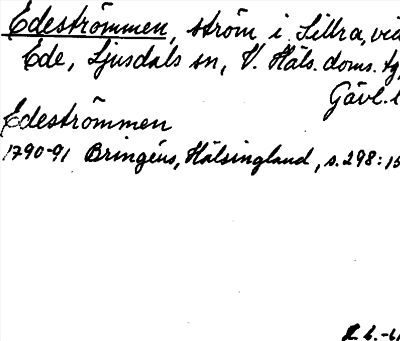 Edeströmmen, ström i Lillra, vid
Ede, Ljusdals sn, V. Häls. doms. tg,
Gävl. l
Edeströmmen
1790-91 Bringéus, Hälsingland, s. 298:15